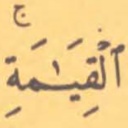 ج
ٱلْقِيَـٰمَةِ